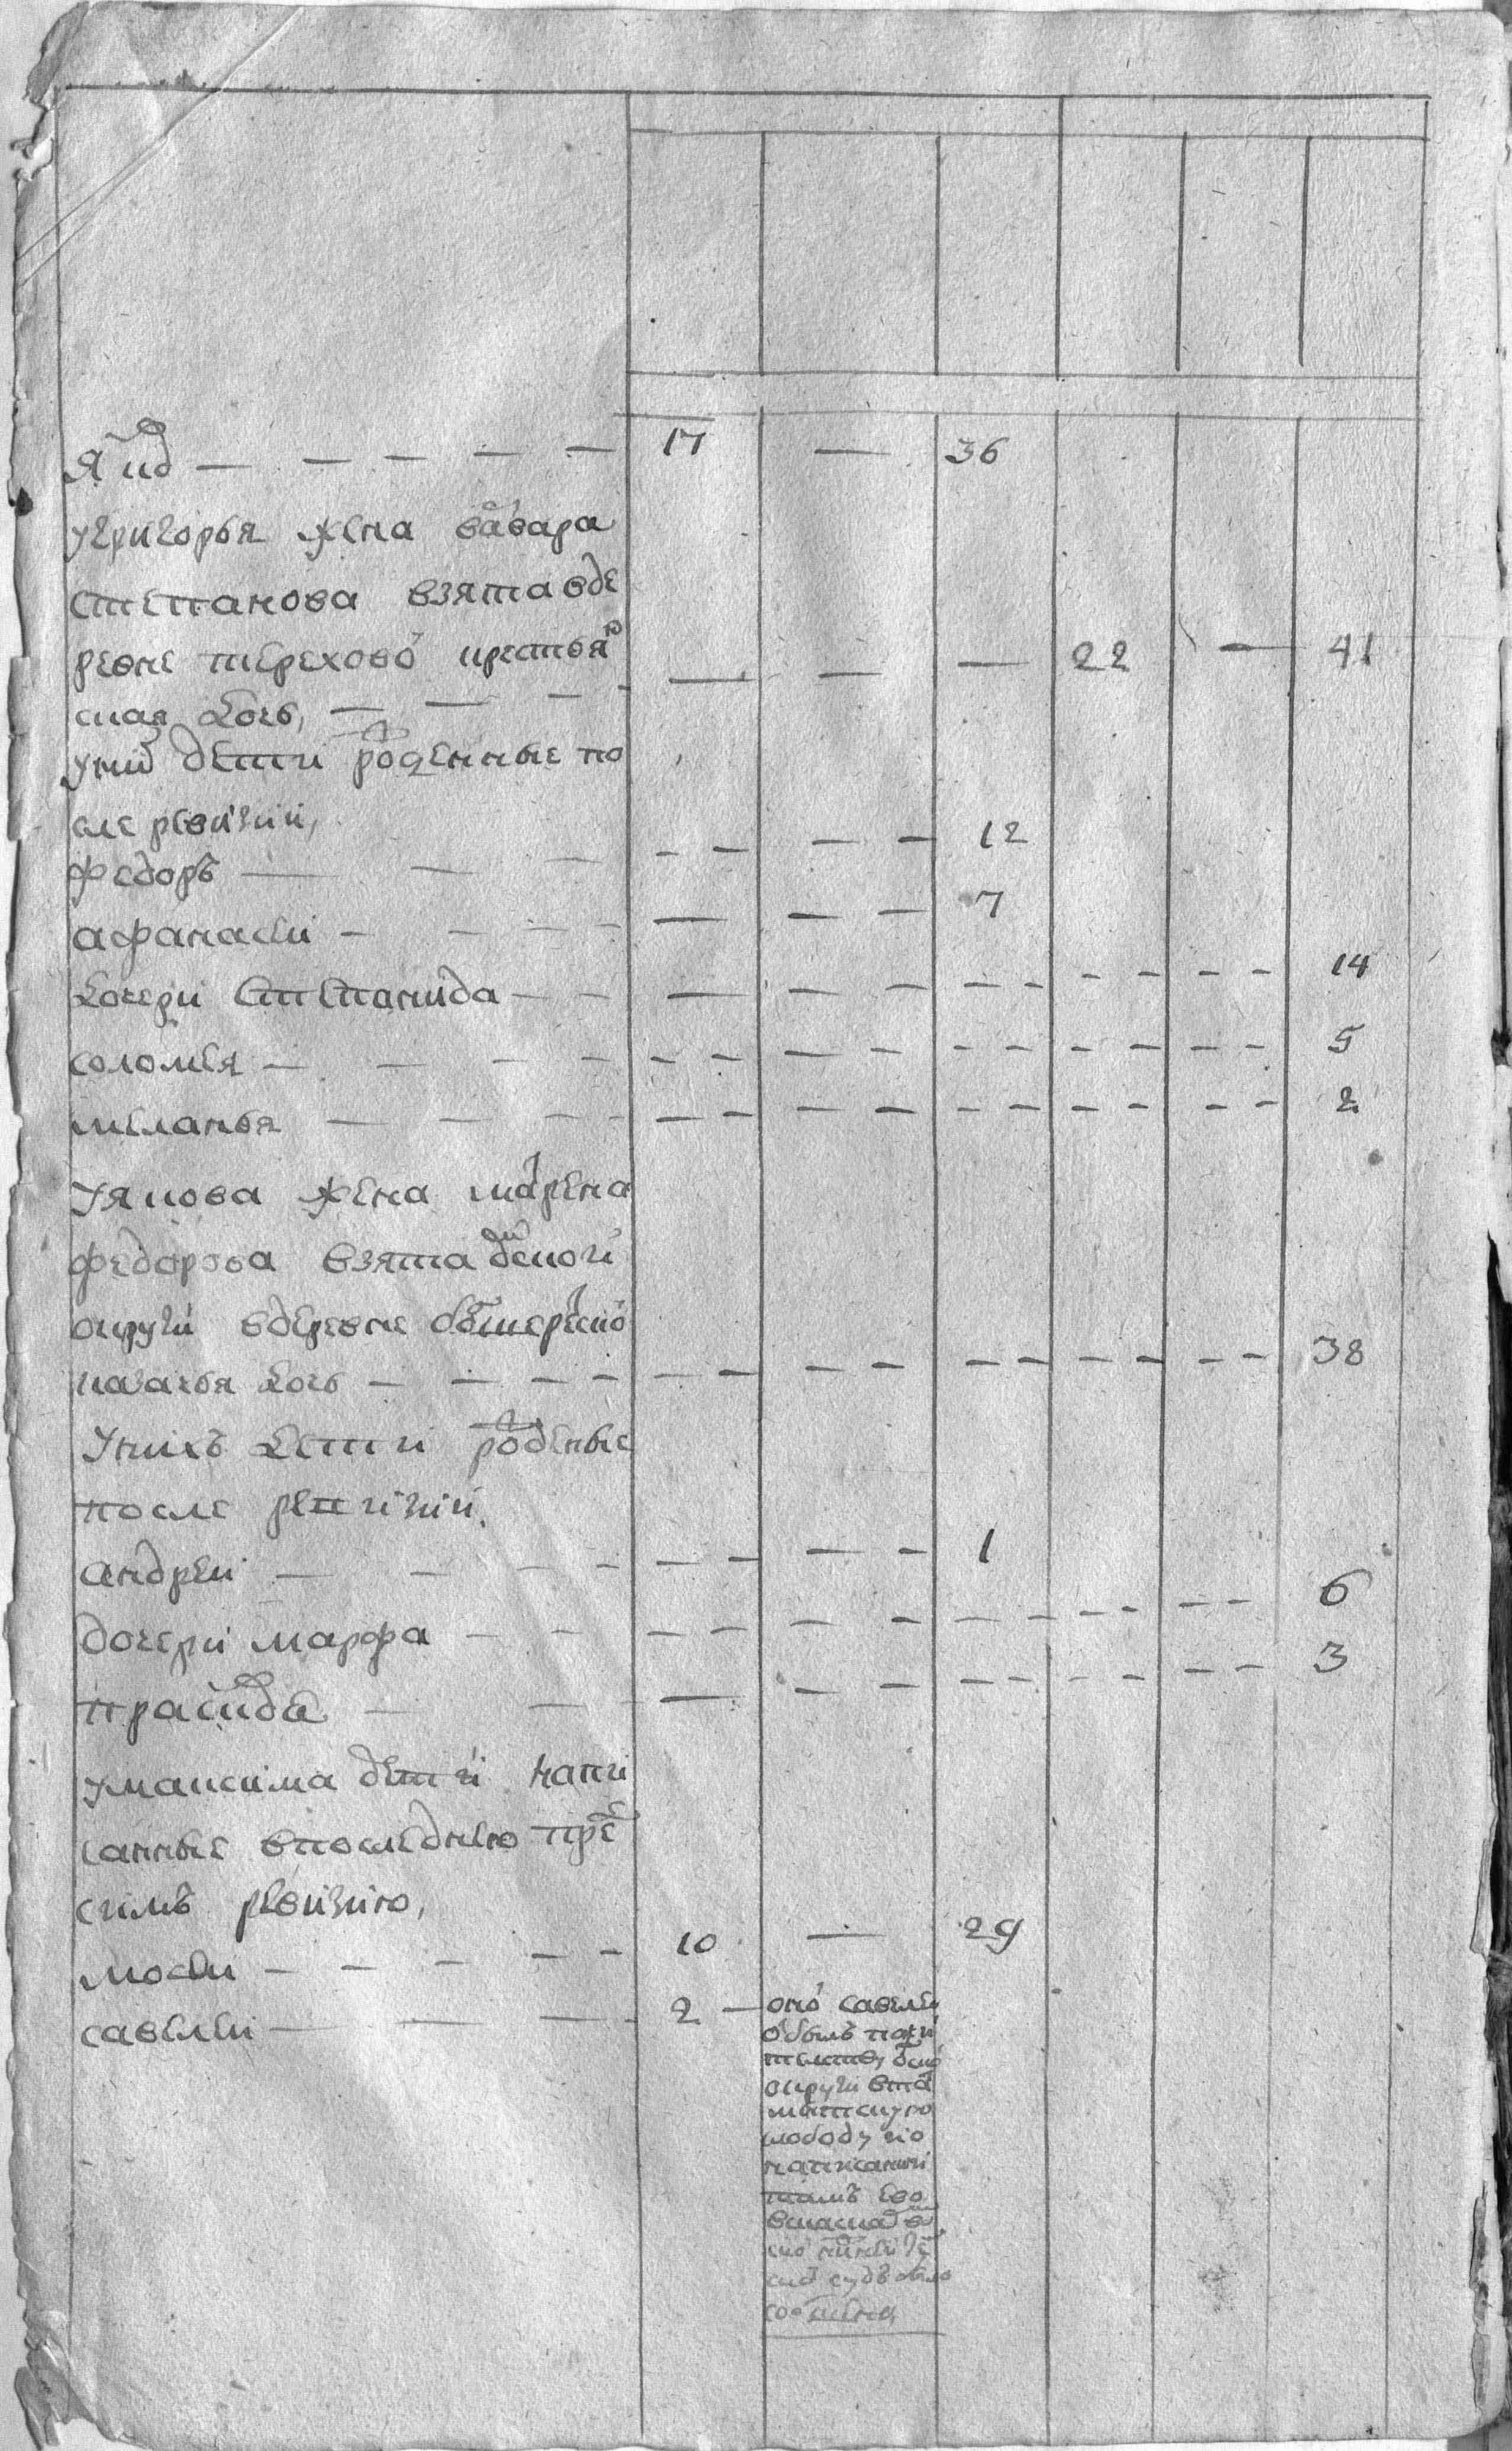 Яковъ — — — — — 17 — 36
угригорья жена варвара
степанова взята вде
ревне терехово крестьян
ская дочь, — — — — — — — 22 — 41
уних дети рожденные по
сле ревизии,
федоръ — — — — — — — 12
афанасеи — — — — — — — — 7
дочери степанида — — — — — — — — — — — 14
соломея — — — — — — — — — — — — — — 5
меланья — — — — — — — — — — — — — — 2
Уякова жена марена
федорова взята
округи вдеревне
казачья дочь — — — — — — — — — — — — — — 38
Унихъ дети рожденые
после ревизии.
андреи — — — — — — — — 1
дочери марфа — — — — — — — — — — — — 6
— — — — — — — — — — — — 3
умаксима дети напи
санные впоследнею пре
симъ ревизию,
мосеи — — — — — 10 — 29
савелеи — — — — 2 —
оной савелеи
округи
слободу по
написании
тамъ ево